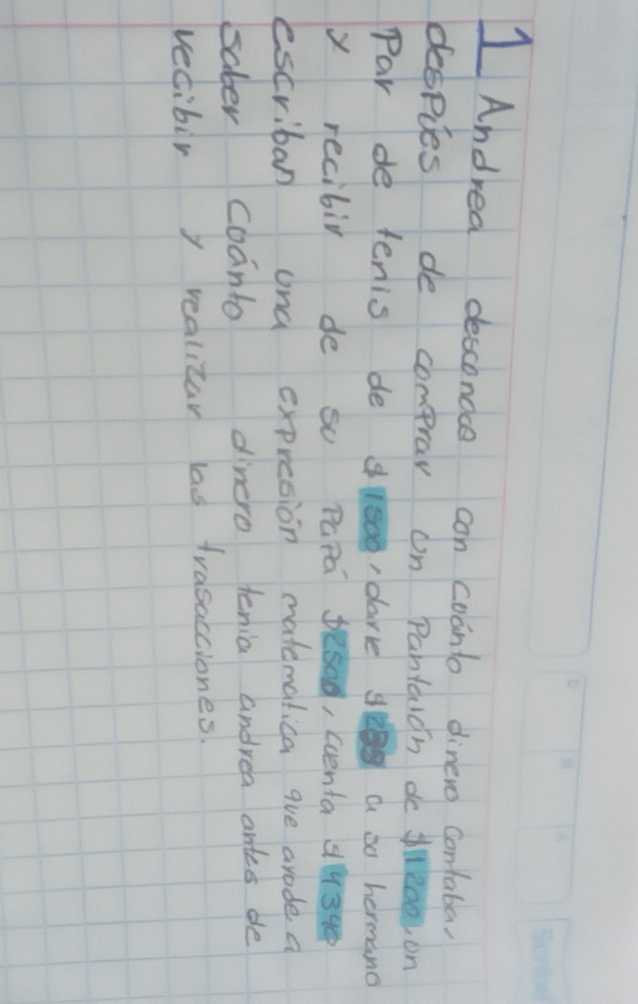 1 Andrea desconoce con cuánto dinero contaba,
despíes de comprar un Pantalón de $1200, un
Par de tenis de $1500, darle $ a su hermano
y recibir de su Papá $2500, cuenta $4340
escriban una expresión matematica que arode a
saber Cuánto dinero tenia andrea antes de
recibir y realizar las trasacciones.